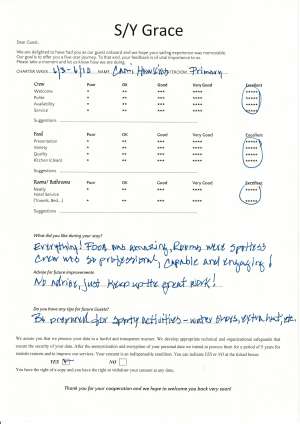 S/Y Grace
Dear Guest,
We are delighted to have had you as our guest onboard and we hope your sailing experience was memorable.
Our goal is to offer you a five-star journey. To that end, your feedback is of vital importance to us.
Please take a moment and let us know how are we doing.
CHARTER WEEK: 6/3-6/10 NAME: Cami Hawkins STATEROOM: Primary
Crew Poor OK Good Very Good Excellent
Welcome * ** *** **** *****
Rules * ** *** **** *****
Availability * ** *** **** *****
Service * ** *** **** *****
Suggestions
Food Poor OK Good Very Good Excellent
Presentation * ** *** **** *****
Variety * ** *** **** *****
Quality * ** *** **** *****
Kitchen (clean) * ** *** **** *****
Suggestions
Rooms/ Bathrooms Poor OK Good Very Good Excellent
Neatly * ** *** **** *****
Hotel Service
(Towels, Bed...) * ** *** **** *****
Suggestions
What did you like during your stay?
Everything! Food was amazing, Rooms were spotless
Crew was so professional, capable and engaging!
Advice for future improvements
No advice, just keep up the great work!
Do you have any tips for future Guests?
Be prepared for sporty activities - water shoes, extra hat, etc.
We assure you that we process your data in a lawful and transparent manner. We develop appropriate technical and organizational safeguards that
ensure the security of your data. After the anonymization and encryption of your personal data we intend to process them for a period of 5 years for
statistic reasons and to improve our services. Your consent is an indispensable condition. You can indicate YES or NO at the ticked boxes:
YES NO
You have the right of a copy and you have the right to withdraw your consent at any time.
Thank you for your cooperation and we hope to welcome you back very soon!